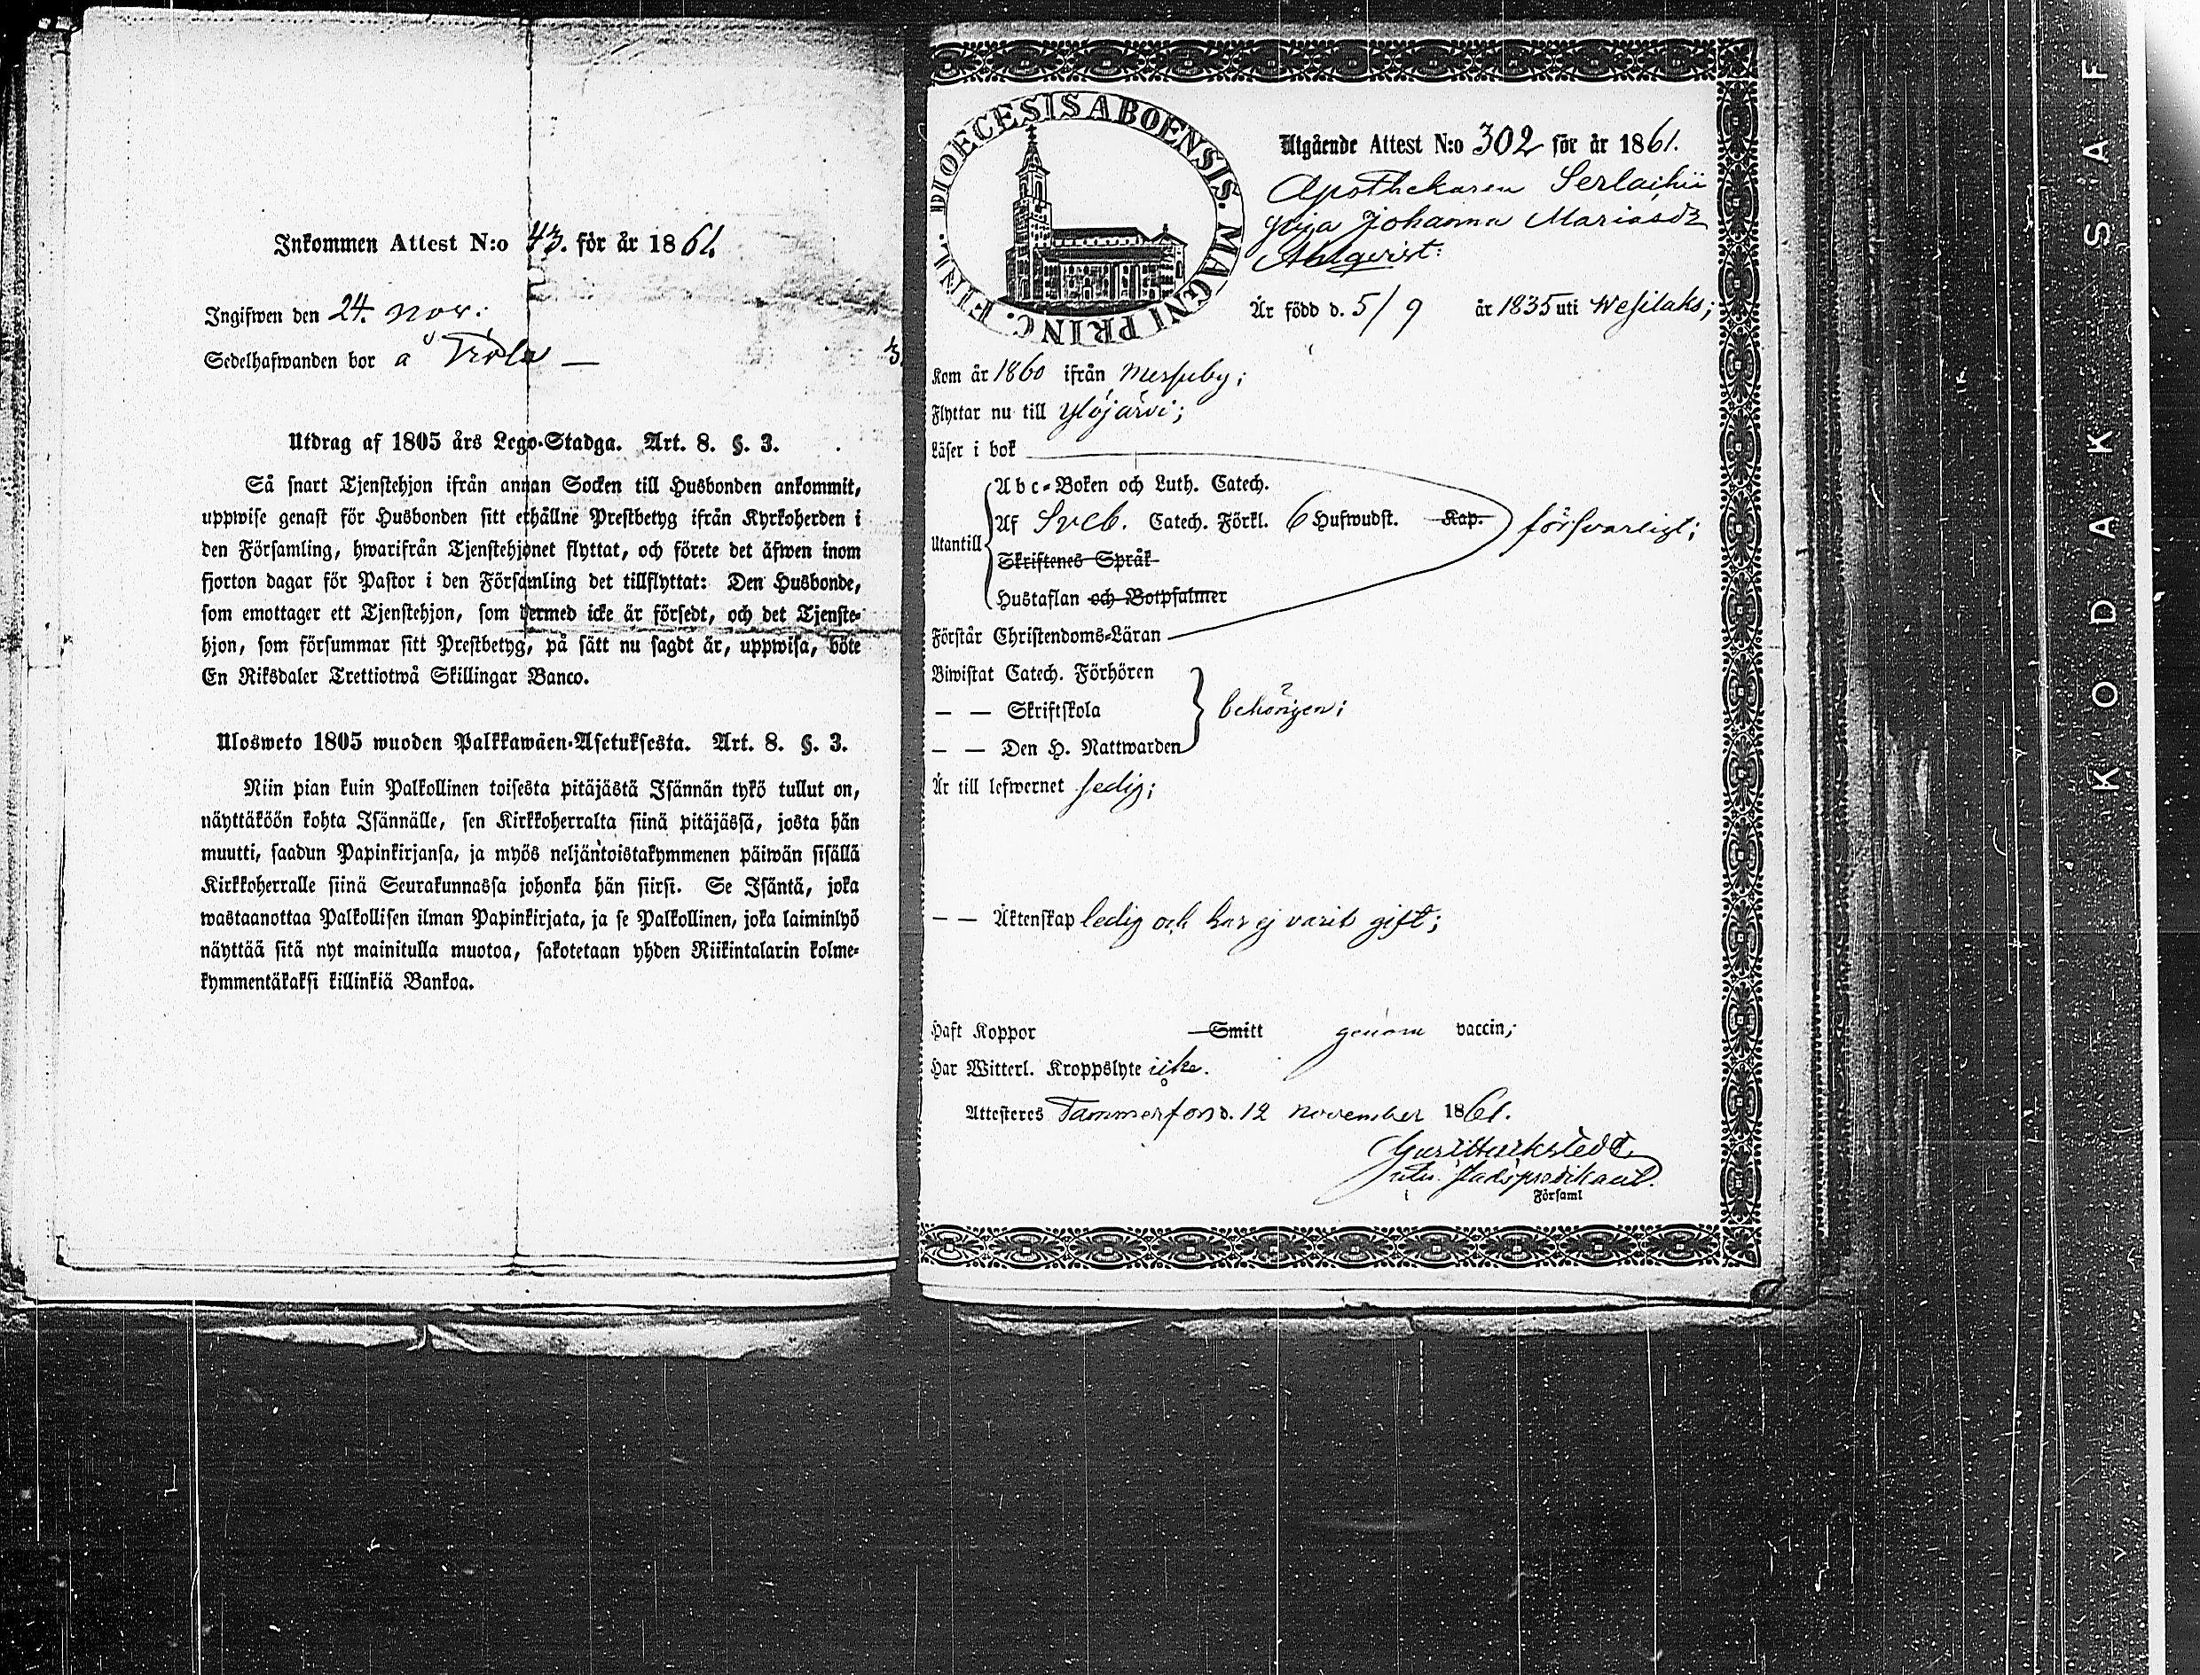 Inkommen Attest N:o 43. för år 1861.
Ingifwen den 24. Nov:
Sedelhafwanden bor å Trola —
3
Utdrag af 1805 års Lego-Stadga. Art. 8. §. 3.
Så snart Tjenstehjon ifrån annan Socken till Husbonden ankommit,
uppwise genast för Husbonden sitt erhållne Prestbetyg ifrån Kyrkoherden i
den Församling, hwarifrån Tjenstehjonet flyttat, och förete det äfwen inom
fjorton dagar för Pastor i den Församling det tillflyttat: Den Husbonde,
som emottager ett Tjenstehjon, som dermed icke är försedt, och det Tjenste-
hjon, som försummar sitt Prestbetyg, på sätt nu sagdt är, uppwisa, böte
En Riksdaler Trettiotwå Skillingar Banco.
Ulosweto 1805 wuoden Palkkawäen-Asetuksesta. Art. 8. §. 3.
Niin pian kuin Palkollinen toisesta pitäjästä Isännän tykö tullut on,
näyttäköön kohta Isännälle, sen Kirkkoherralta siinä pitäjässä, josta hän
muutti, saadun Papinkirjansa, ja myös neljäntoistakymmenen päiwän sisällä
Kirkkoherralle siinä Seurakunnassa johonka hän siirsi. Se Isäntä, joka
wastaanottaa Palkollisen ilman Papinkirjata, ja se Palkollinen, joka laiminlyö
näyttää sitä nyt mainitulla muotoa, sakotetaan yhden Riikintalarin kolme-
kymmentäkaksi killinkiä Bankoa.
DIOECESIS ABOENSIS. MAGNI PRINC. FINL.
Utgående Attest N:o 302 för år 1861.
Apothekaren Serlachii
piga Johanna Mariasdr
Ahlqvist:
Är född d. 5/9 år 1835 uti Wesilaks;
Kom år 1860 ifrån Messuby;
Flyttar nu till Ylöjärvi;
Läser i bok
Abc-Boken och Luth. Catech.
Utantill Af Sveb. Catech. Förkl. 6 Hufwudst. Kap. försvarligt;
Skriftenes Språk
Hustaflan och Botpsalmer
Förstår Christendoms-Läran
Biwistat Catech. Förhören
— — Skriftskola behörigen;
— — Den H. Nattwarden
Är till lefwernet sedig;
— — Äktenskap ledig och har ej varit gift;
Haft Koppor Smitt genom vaccin;
Har Witterl. Kroppslyte icke.
Attesteres Tammerfors d. 12 November 1861.
Stadspredikant.
i Församl
KODAK SAF